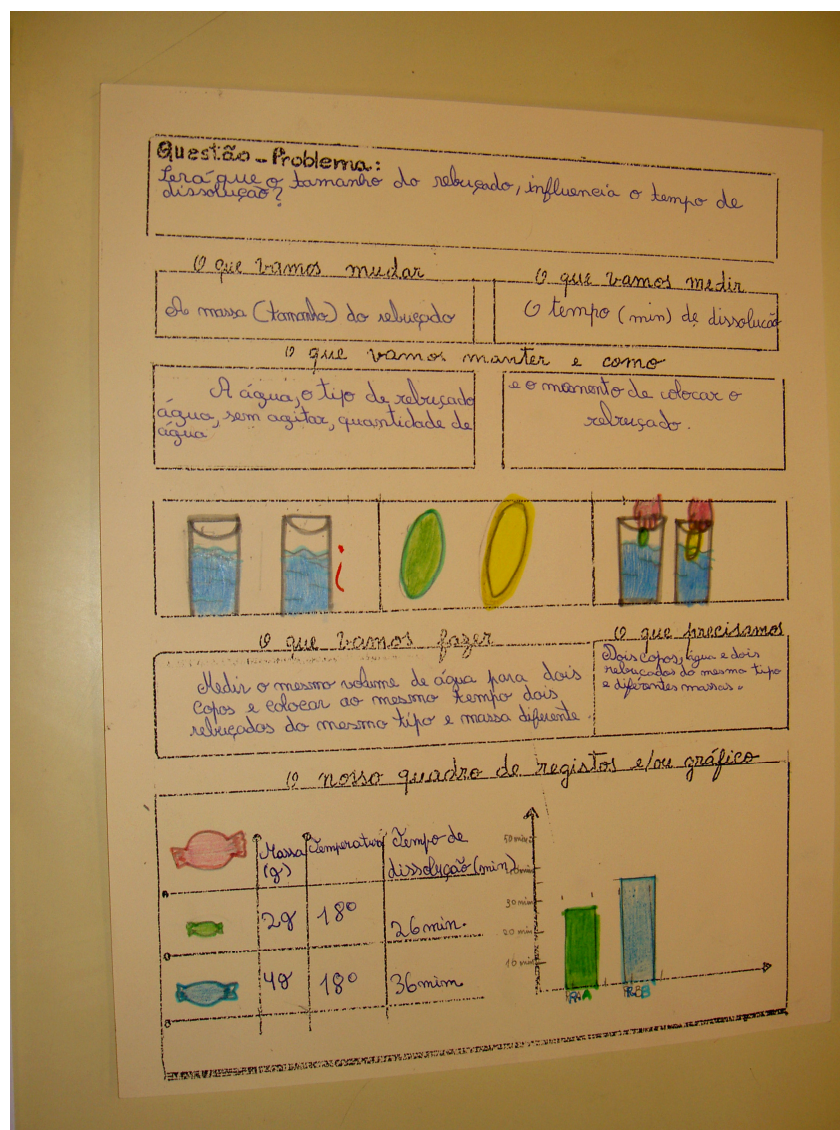 Questão - Problema:
Será que o tamanho do rebuçado, influencia o tempo de
dissolução?
O que vamos mudar
A massa (tamanho) do rebuçado
O que vamos medir
O tempo (min) de dissolução
O que vamos manter e como
A água, o tipo de rebuçado
água, sem agitar, quantidade de
água
e o momento de colocar o
rebuçado.
O que vamos fazer
Medir o mesmo volume de água para dois
copos e colocar ao mesmo tempo dois
rebuçados do mesmo tipo e massa diferente.
O que precisamos
Dois copos, água e dois
rebuçados do mesmo tipo
e diferentes massas.
O nosso quadro de registos e/ou gráfico
Massa
(g)
Temperatura
Tempo de
dissolução (min)
A
2g
18º
26 min.
4g
18º
36 mim
B
50 min
30 min
20 min
10 min
A
B